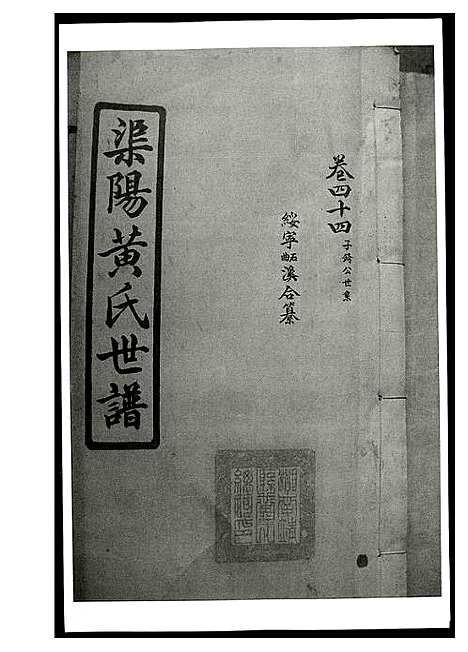 卷四十四 子錡公世系
綏寧 溪合纂
渠陽黃氏世譜